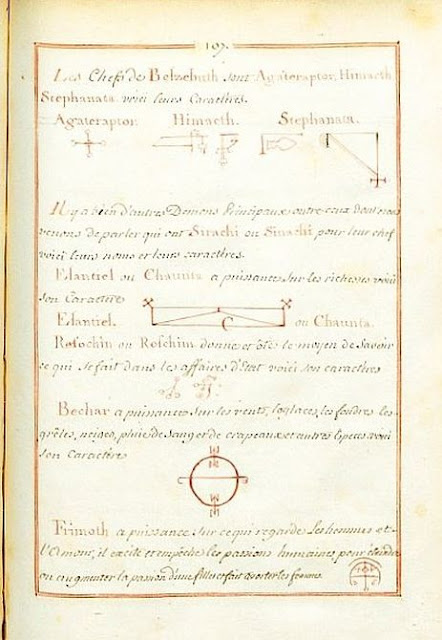 107.
Les Chefs de Belzebuth sont Agateraptor, Himaeth
Stephanata. voici leurs Caractères.
Agateraptor. Himaeth. Stephanata.
Il y a bien d'autres Demons Principaux outre ceux dont nous
venons de parler qui ont Sirachi ou Sinachi pour leur chef
voici leurs noms et leurs caractères.
Elantiel ou Chaunta a puissance sur les richesses voici
son Caractère
Elantiel. ou Chaunta.
Resochin ou Roschim donne et ôte le moyen de savoir
ce qui se fait dans les affaires d'Etat voici son caractère
Bechar a puissance sur les vents, les glaces, les foudres les
grêles, neiges, pluies de sang et de crapeaux et autres Especes voici
son Caractères
Frimoth a puissance sur ce qui regarde les femmes et
l'Amour, il excite et empêche les passions humaines, pour
ou augmenter la passion d'une fille et fait avorter les femmes.